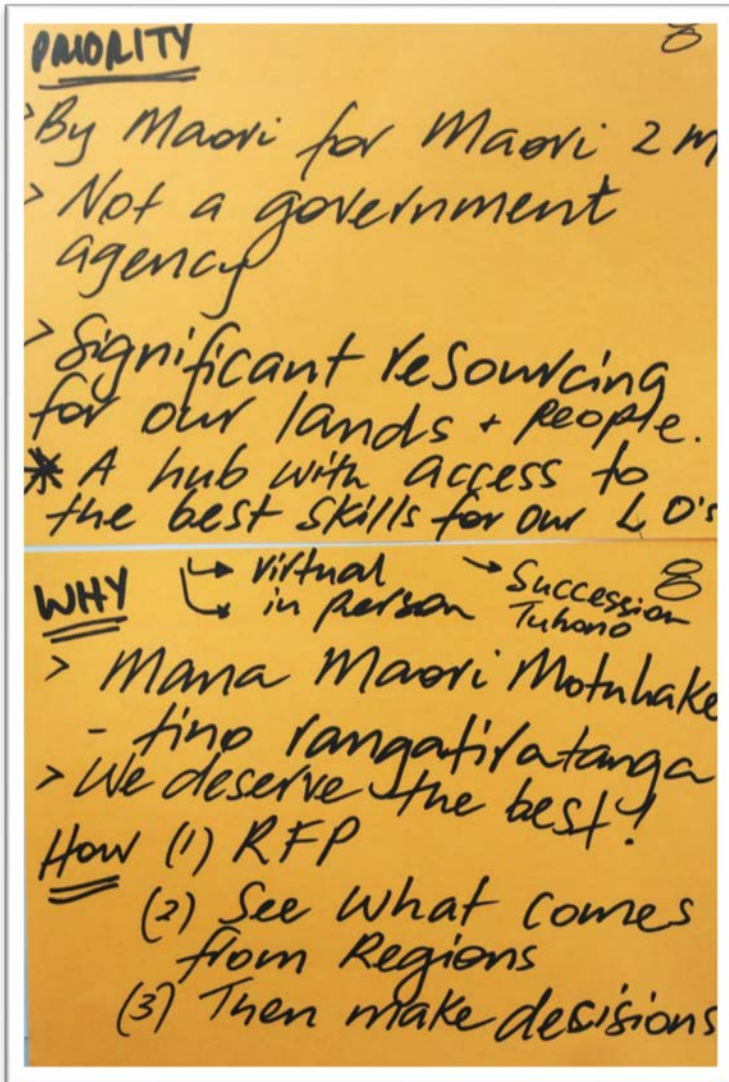 PRIORITY 8
> By Maori for Maori 2 m
> Not a government
agency
> Significant resourcing
for our lands + people.
* A hub with access to
the best skills for our LO's
WHY ↳ virtual → Succession 8
↳ in person Tuhono
> Mana Maori Motuhake
- tino rangatiratanga
> We deserve the best!
How (1) RFP
(2) See what comes
from Regions
(3) Then make decisions